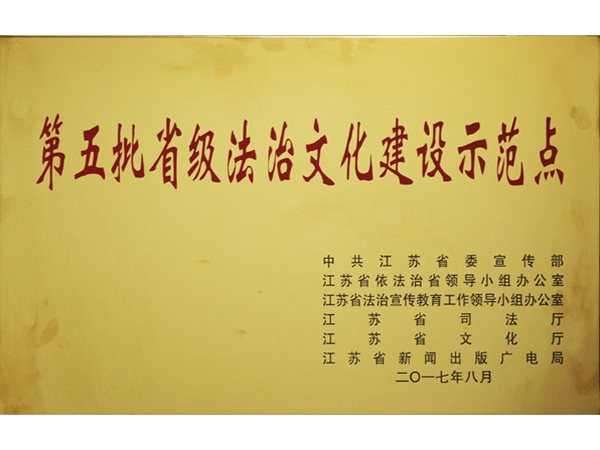 第五批省级法治文化建设示范点
中共江苏省委宣传部
江苏省依法治省领导小组办公室
江苏省法治宣传教育工作领导小组办公室
江苏省司法厅
江苏省文化厅
江苏省新闻出版广电局
二〇一七年八月